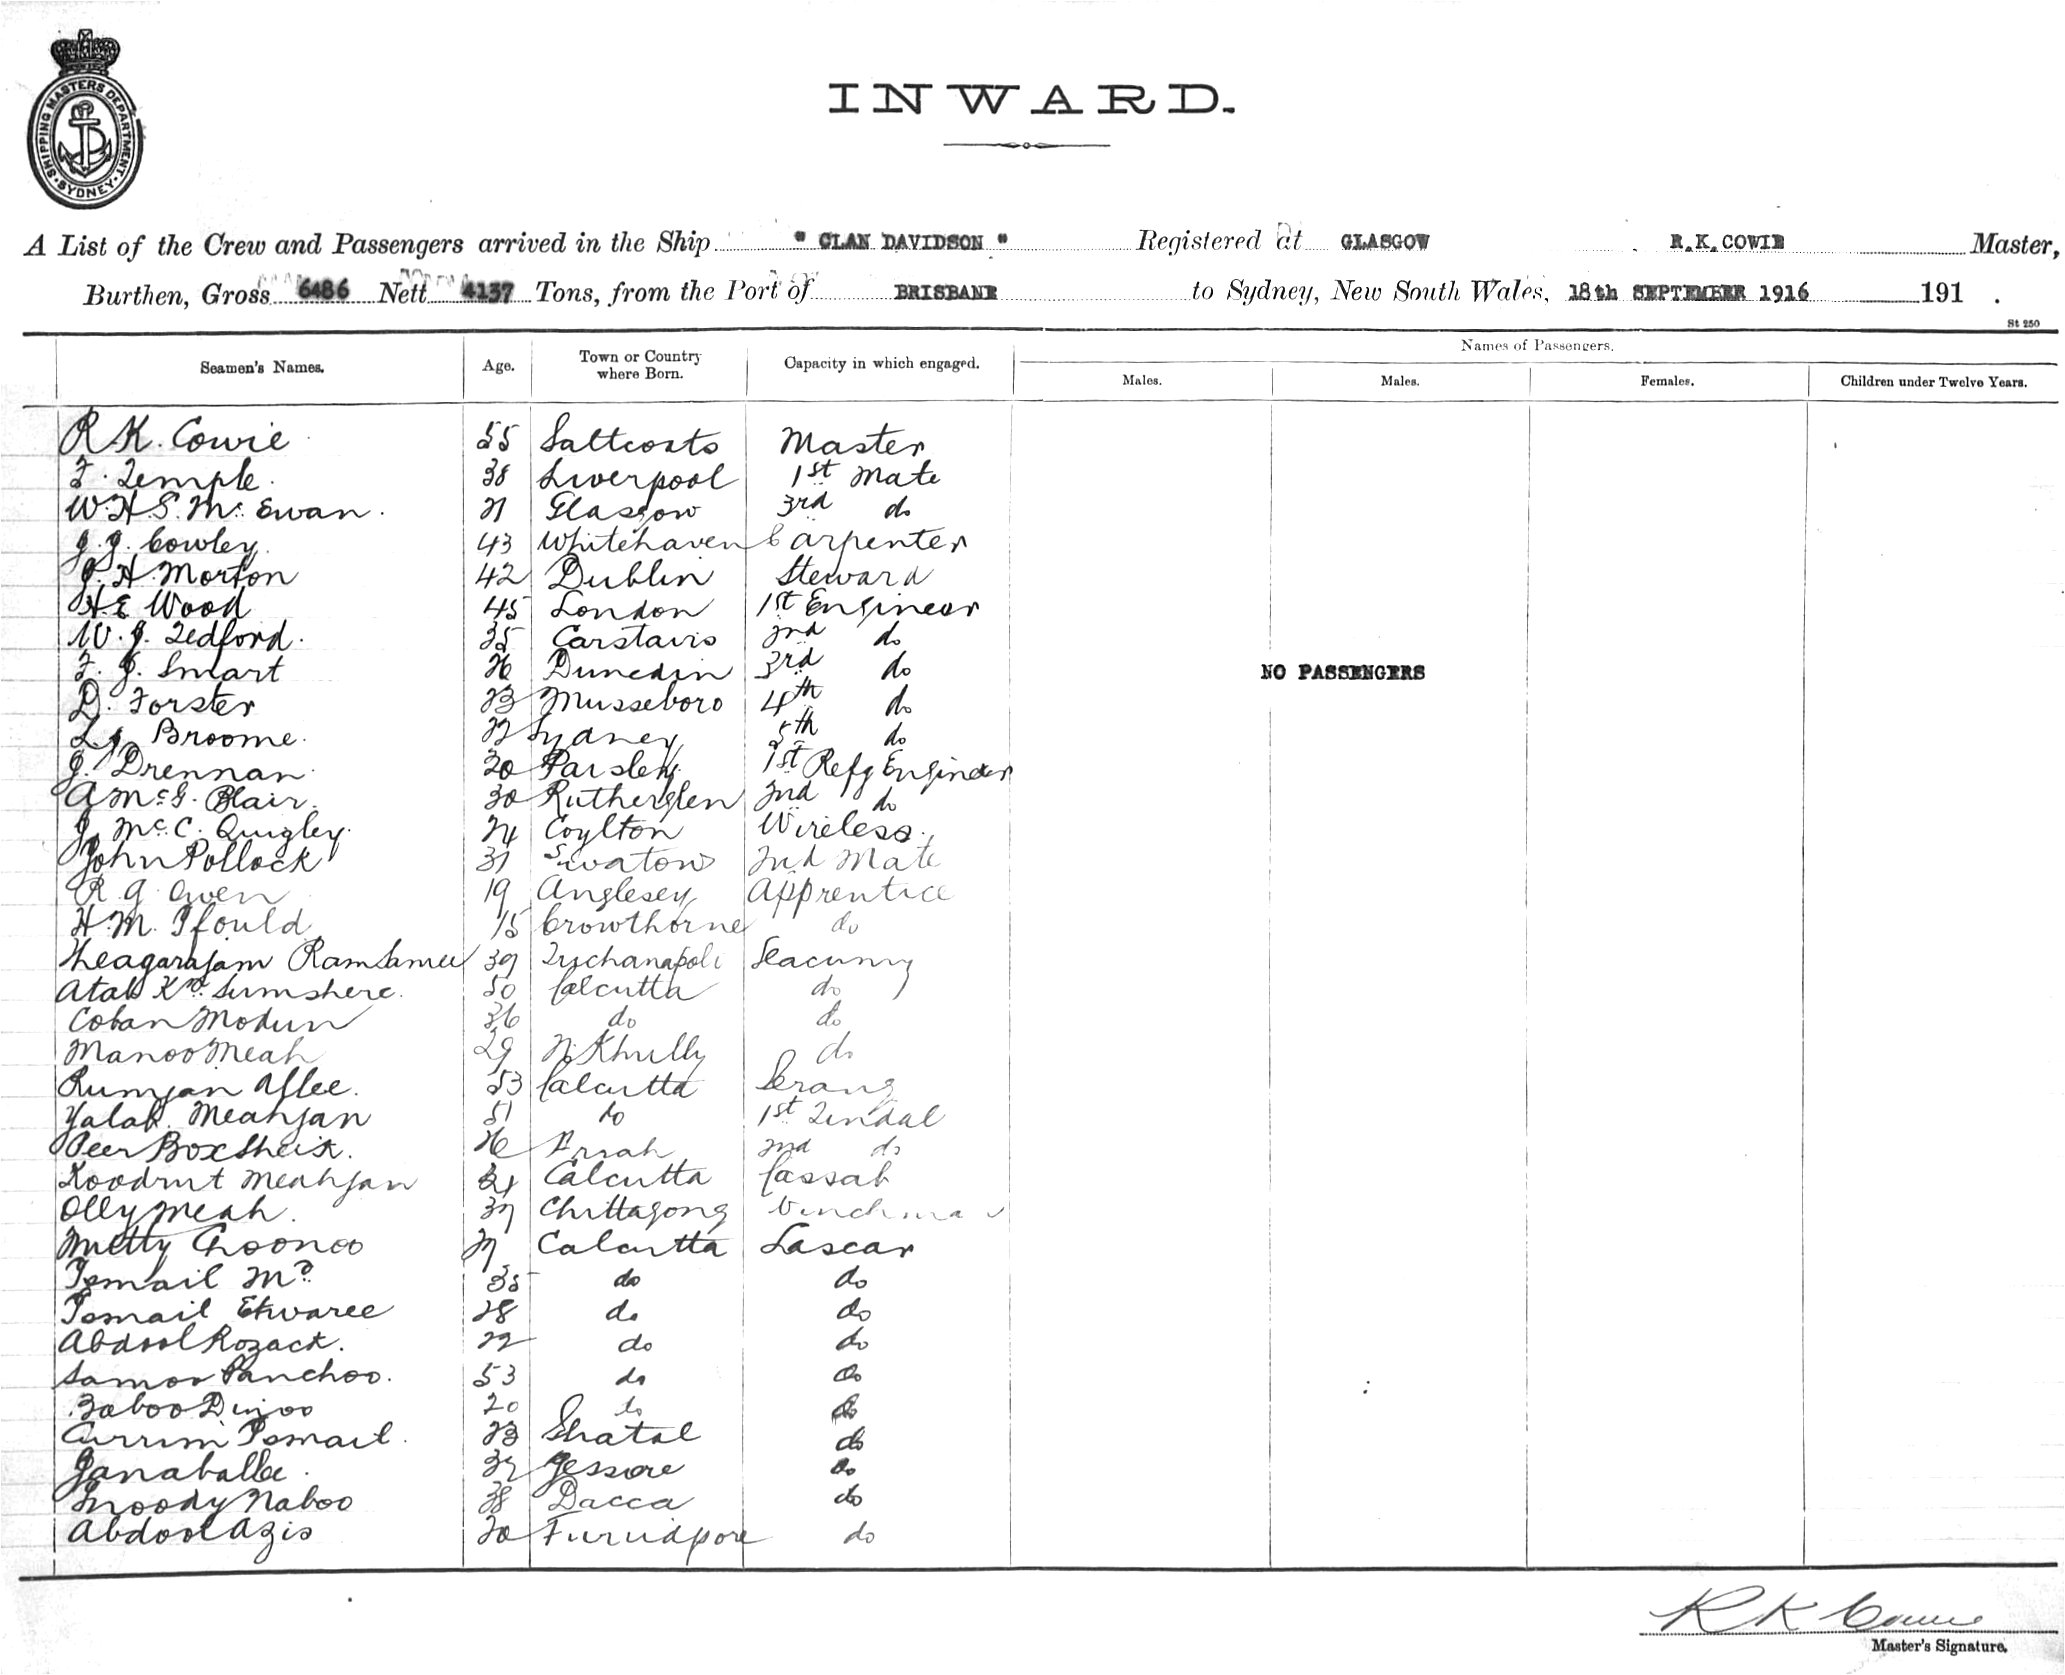 SHIPPING MASTERS DEPARTMENT. SYDNEY
INWARD.
A List of the Crew and Passengers arrived in the Ship " CLAN DAVIDSON " Registered at GLASGOW R.K.COWIE Master,
Burthen, Gross 6486 Nett 4137 Tons, from the Port of BRISBANE to Sydney, New South Wales, 18th SEPTEMBER 1916 191 .
St 250
Seamen's Names. Age. Town or Country where Born. Capacity in which engaged. Names of Passengers.
Males. Males. Females. Children under Twelve Years.
R.K. Cowie 55 Saltcoats Master
F. Temple. 38 Liverpool 1st Mate
W.H.S. Mc Ewan. 21 Glasgow 3rd do
J.J. Cowley. 43 Whitehaven Carpenter
J.H. Morton 42 Dublin Steward
H.E Wood 45 London 1st Engineer
W.J. Tedford. 35 Carstairs 2nd do
F. J. Smart 26 Dunedin 3rd do
NO PASSENGERS
D. Forster 23 Musseboro 4th do
Broome. 22 Sydney 5th do
J. Drennan 30 Paisley 1st Refg Engineer
A McG. Blair. 30 Rutherglen 2nd do
J. McC. Quigley. 24 Coylton Wireless.
John Pollock 31 Swatow 2nd Mate
R G Owen 19 Anglesey Apprentice
H.M. Ifould 15 Crowthorne do
Theagarajam Ramsamee 39 Trichanapoli Seacunny
Atab Kd. Sumshere. 50 Calcutta do
Coban Modun 36 do do
Manoo Meah 29 do
Rumjan Allee. 53 Calcutta Serang
Meahjan 51 do 1st Tindal
Peer Box Sheik. 26 Arrah 2nd do
Koodrut Meahjan Calcutta Cassab
Olly Meah. 37 Chittagong Winchman
Choonoo 27 Calcutta Lascar
Ismail Md. 35 do do
Ismail Etwaree 28 do do
Abdool Rozack. 22 do do
Samoo Panchoo. 53 do do
Baboo 20 do do
Currim Ismail. 23 do
Janaballee. Jessore do
Naboo 38 Dacca do
Abdool Azis 20 Furridpore do
R K Cowie
Master's Signature.